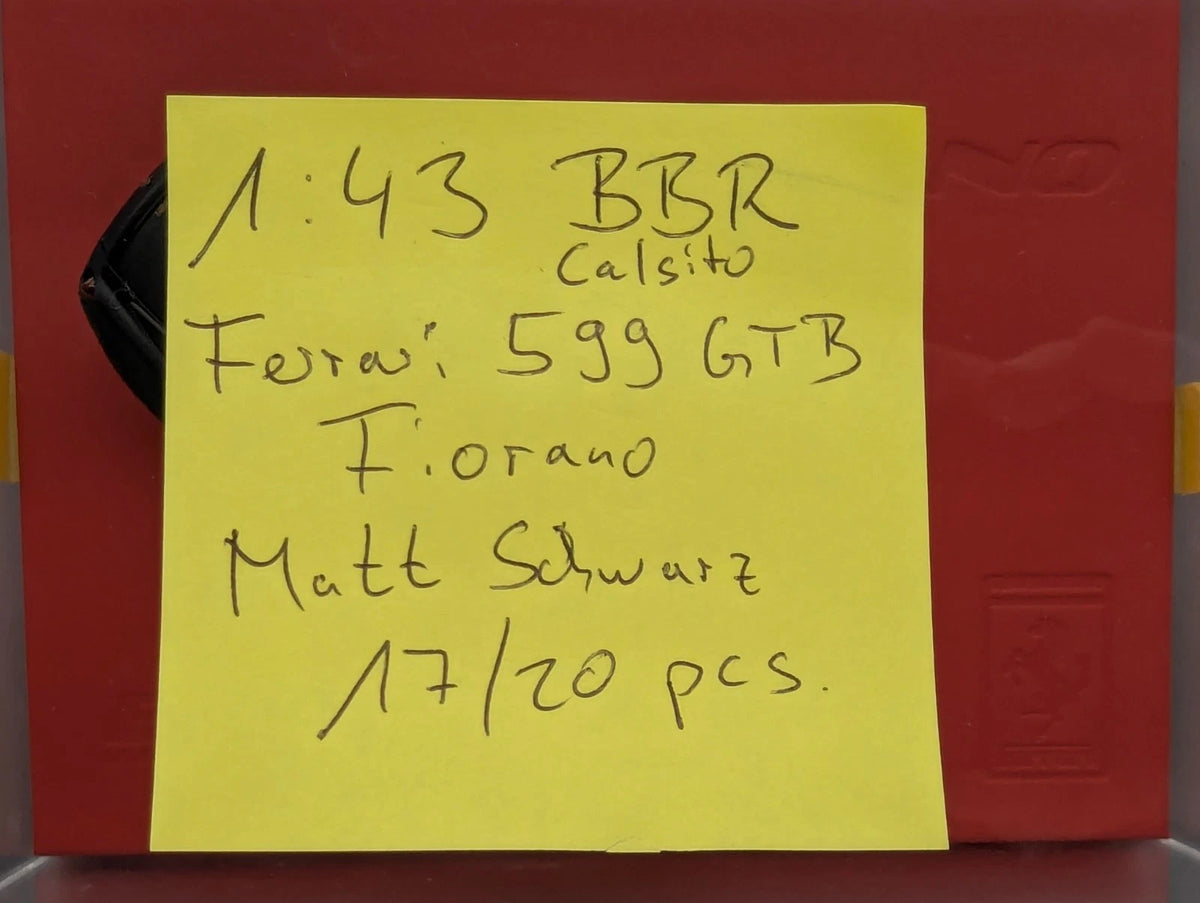 1:43 BBR
Calsito
Ferrari 599 GTB
Fiorano
Matt Schwarz
17/20 pcs.